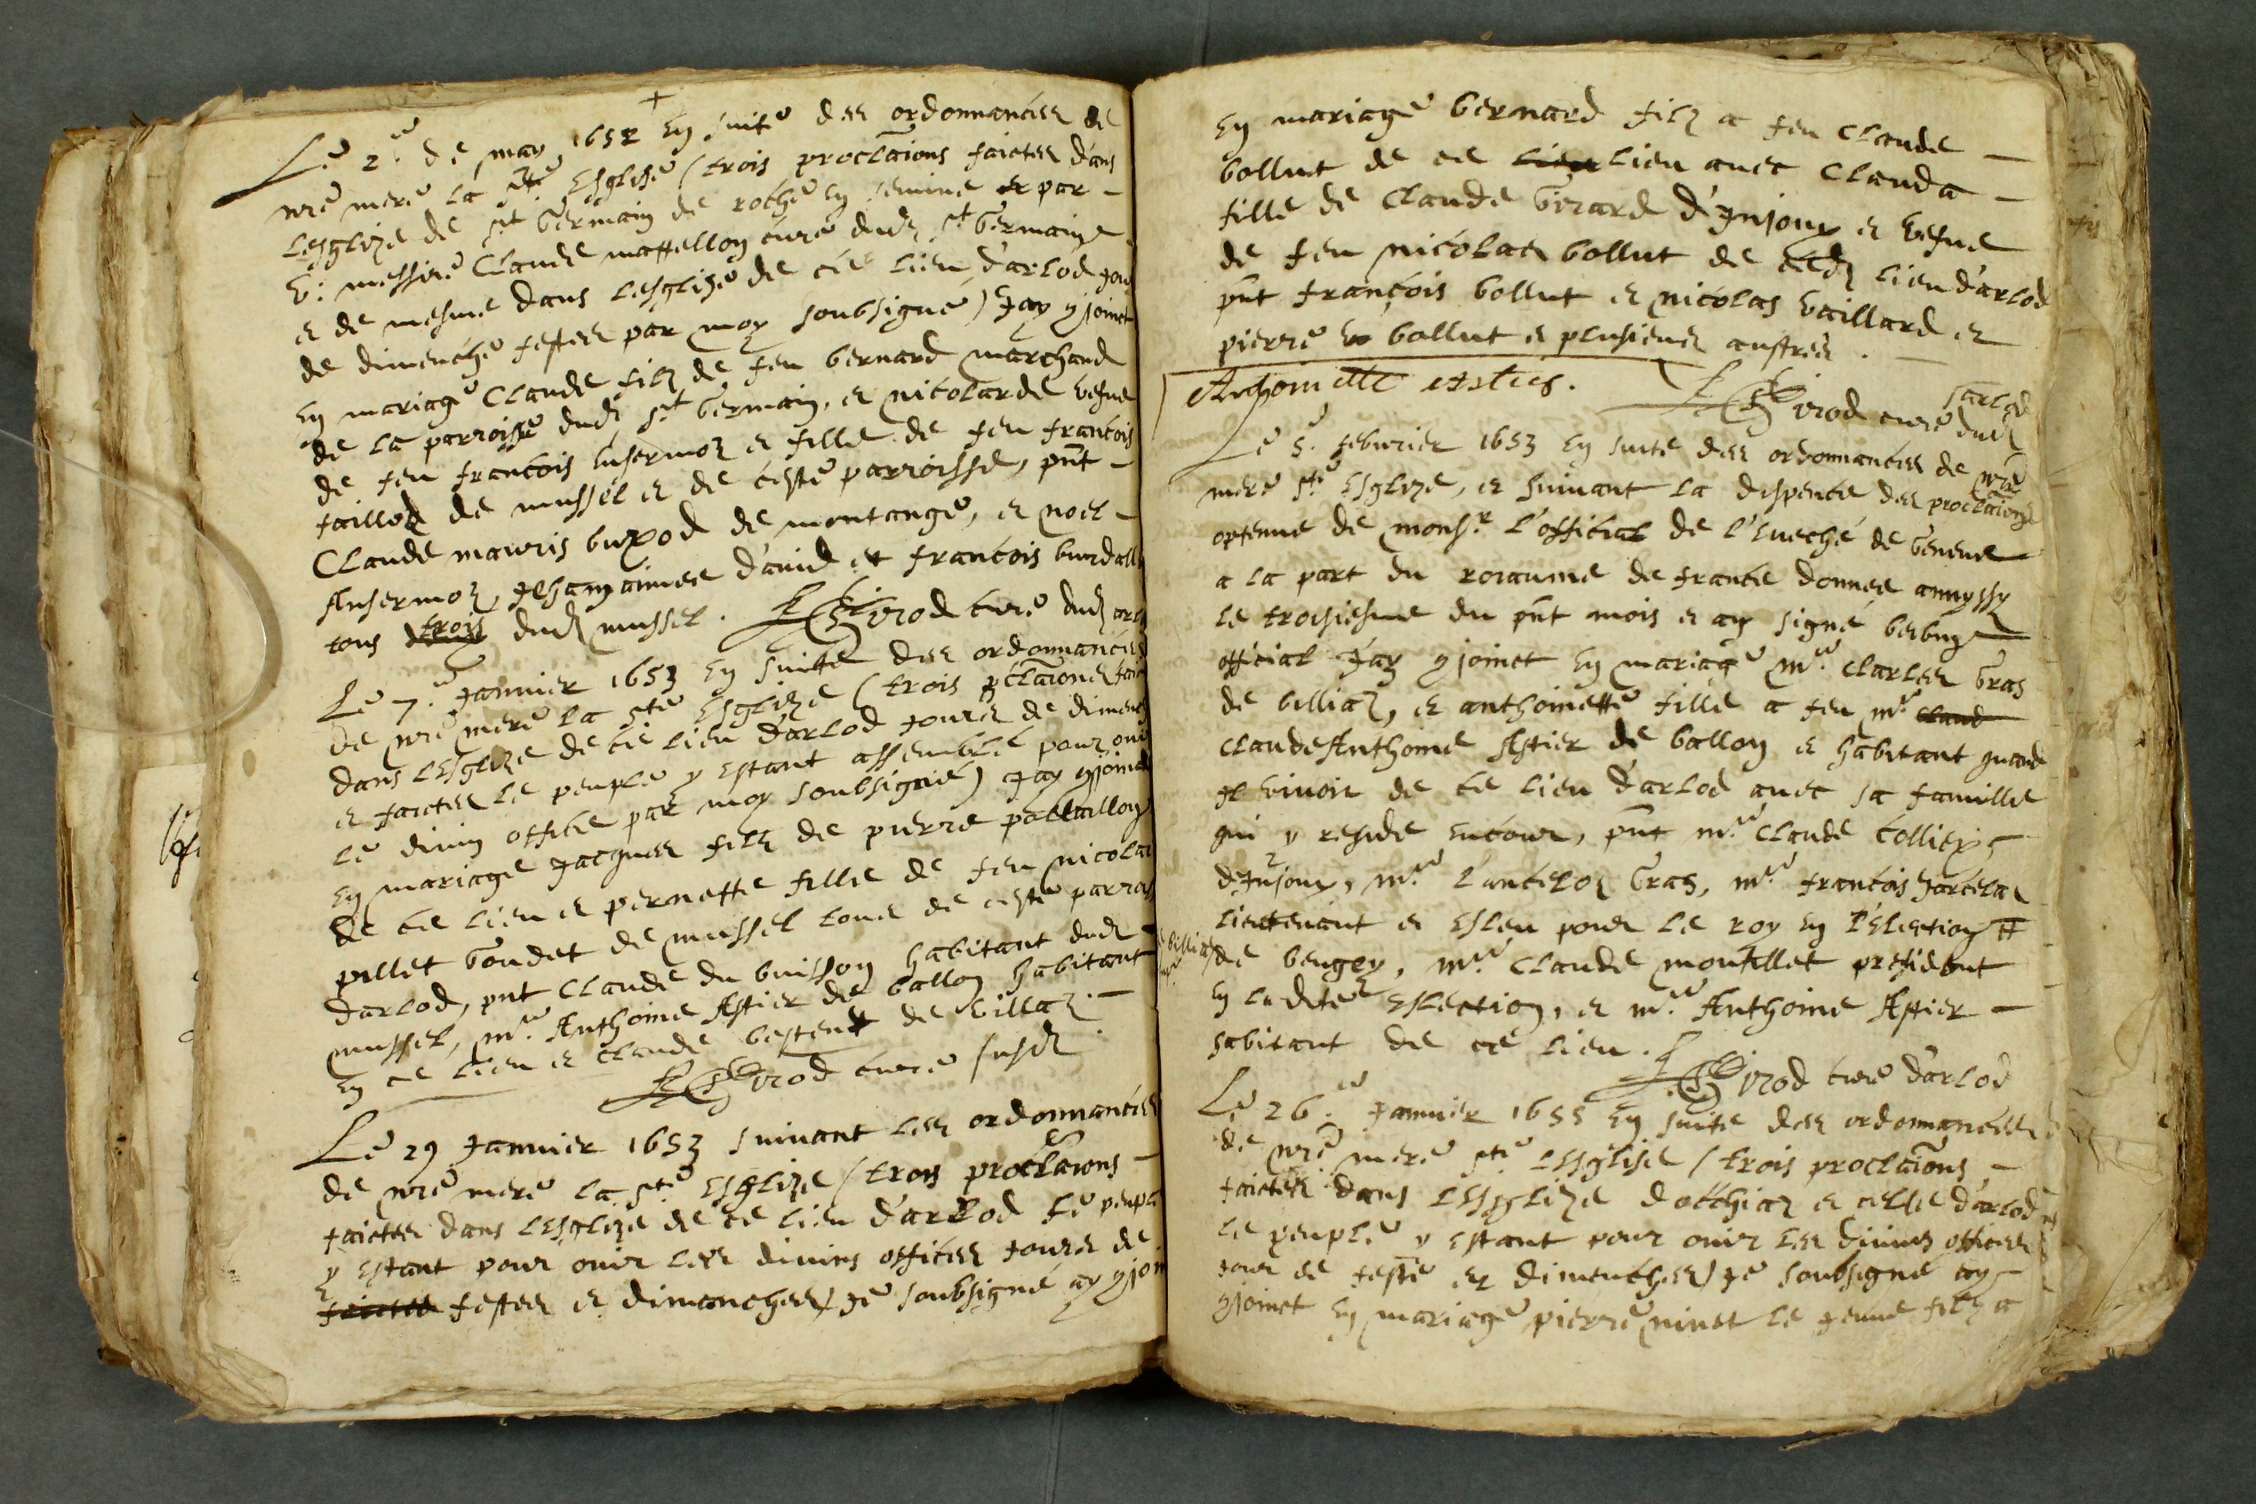 Le 2e de may 1652 en suite des ordonnances de
nre mere la ste Esglise (trois proclaions faictes dans
lesglize de st Germain de et par
V: messire Claude curé dudt st Germain
et de mesme dans lesglize de ce lieu d'arlod jour
de dimenche festes par moy soubsigné) Jay conjoinct
en mariage Claude filz de feu bernard marchand
de la parroisse dudt st Germain, et nicolarde vefve
de feu francois Ansermoz et fille de feu francois
de mussel et de ceste parroisse, pnt
Claude mauris buxod de montange, et noel
Ansermoz david et francois
tous trois dudt mussel. curé dudt arlod
Le 7e Janvier 1653 en suitte des ordonnances
de nre mere la ste Esglize (trois pclaiones faictes
dans lesglize de ce lieu d'arlod jours de dimenches
et faictes le peuple y estant assemblé pour ouir
le divin office par moy soubsigné) Jay conjoinct
en mariage Jacques filz de pierre
de ce lieu et pernette fille de feu nicolas
pillet Goudet de mussel tous de ceste parroisse
darlod, pnt Claude du buisson habitant dudt
mussel, mre Anthoine Astier de ballon habitant
en ce lieu et Claude de villaz.
curé susdt
Le 29 Janvier 1653 suivant les ordonnances
de nre mere la ste Esglize (trois proclaions
faictes dans lesglize de ce lieu d'arlod le peuple
y estant pour ouir les divins offices jours de
festes et dimenches) je soubsigné ay conjoinct
en mariage bernard filz a feu Claude
bollut de ce lieu lieu avec Clauda
fille de Claude Girard d'Injoux et vefve
de feu nicolas bollut de cedt lieu d'arlod
pnt françois bollut et nicolas vaillard et
pierre bollut et plusieurs austres.
curé dudt
darlod
Le 5e febvrier 1653 en suite des ordonnances de nre
mere ste Esglize, et suivant la dispence des proclaions
optenue de monsr l'official de l'Eveché de Geneve
a la part du roiaume de france donnee annyssy
le troisiesme du pnt mois et an signé
official Jay conjoinct en mariage mre Charles Gras
de billiaz, et anthoinette fille a feu mre Claud
Claude Anthoine Astier de ballon et habitant quand
il vivoit de ce lieu d'arlod avec sa famille
qui y reside encour, pnt mre Claude Colliex
d'Injoux, mre Lancelot Gras, mre francois
lieutenant et esleu pour le roy en l'Election
de beugey, mre Claude montillet president
en ladite eslection, et mre Anthoine Astier
habitant de ce lieu.
curé d'arlod
Le 26e Janvier 1655 en suite des ordonnances
de nre mere ste lesglise (trois proclaions
faictes dans lesglize dotthiaz et celle d'arlod
le peuple y estant pour ouir les divins offices
jour de feste et dimenches) je soubsigné ay
conjoinct en mariage pierre ninet le jeune filz a